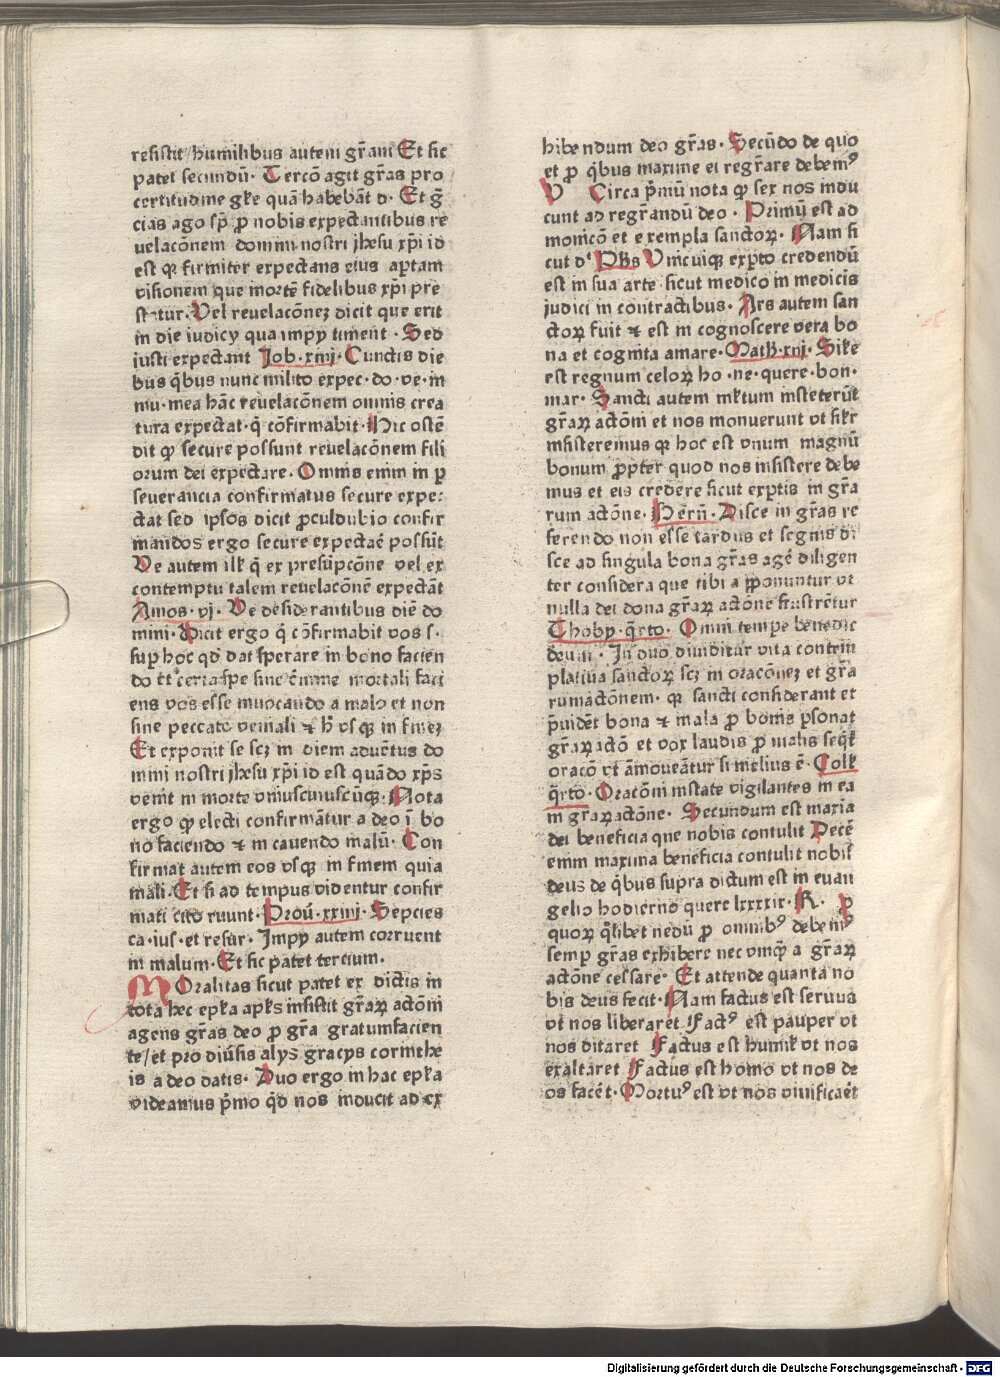 resistit/humilibus autem gr̄am Et sic
patet secundū· Tercō agit gr̄as pro
certitudine gl̄ie quā habebāt d· Et ḡ
cias ago sp̄ ꝓ nobis expectantibus re
uelacōnem domini nostri jhesu xp̄i id
est qꝛ firmiter expectans eius aptam
visionem que morte fidelibus xp̄i pre
statur· Vel reuelacōneȝ dicit que erit
in die iudicy qua impy timent · Sed
iusti expectant Job·xiiij· Cunctis die
bus q̄bus nunc milito expec·do·ve·in
mu·mea hāc reuelacōnem omnis crea
tura expectat·q̄ cōfirmabit· Hic ostē
dit ꝙ secure possunt reuelacōnem fili
orum dei expectare· Omnis enim in ꝑ
seuerancia confirmatus secure expe:
ctat sed ipsos dicit ꝓculdubio confir
mandos ergo secure expectaē possūt
Ve autem ill̄ q̄ ex presūpcōne vel ex
contemptu talem reuelacōnē expectāt
Amos·vj· Ve desiderantibus diē do
mini· Dicit ergo q̄ cōfirmabit vos s·
suꝑ hoc qd̄ dat sperare in bono facien
do et certa spe sine c̄mine mortali faci
ens vos esse inuocando a malo et non
sine peccato veniali ⁊ h̄ vsqꝫ in fineȝ
Et exponit se scȝ in diem aduētus do
mini nostri jhesu xp̄i id est quādo xp̄s
venit in morte vniuscuiuscūqꝫ· Nota
ergo ꝙ electi confirmātur a deo ī bo
no faciendo ⁊ in cauendo malū· Con
firmat autem eos vsqꝫ in finem quia
mali· Et si ad tempus videntur confir
mati cito ruunt· Prou̅·xxiiij· Sepcies
ca·ius·et resur· Impy autem corruent
in malum· Et sic patet tercium·
MOralitas sicut patet ex dictis in
tota hec epl̄a apl̄s insistit gr̄aꝝ actōni
agens gr̄as deo ꝓ gr̄a gratumfacien
te/et pro diūsis alys gracys corinthe
is a deo datis· Duo ergo in hac epl̄a
videamus p̄mo qd̄ nos inducit ad ex
hibendum deo gr̄as· Secūdo de quo
et ꝓ q̄bus maxime ei regr̄are debemꝰ
V Circa p̄mū nota ꝙ sex nos indu
cunt ad regr̄andū deo · Primū est ad
monicō et exempla sanctoꝝ· Nam si
cut dꝰ Ph̄s Vnicuiqꝫ exꝑto credendū
est in sua arte sicut medico in medicis
judici in contractibus· Ars autem san
ctoꝝ fuit ⁊ est in cognoscere vera bo
na et cognita amare· Math̄·xiij· Sil̄e
est regnum celoꝝ ho·ne·quere·bon·
mar· Sancti autem ml̄tum insteterūt
gr̄aꝝ actōni et nos monuerunt vt sil̄r
insisteremus qꝛ hoc est vnum magnū
bonum ꝓpter quod nos insistere debe
mus et eis credere sicut exꝑtis in gr̄a
rum actōne· Bern̄· Disce in gr̄as re
ferendo non esse tardus et segnis di
sce ad singula bona gr̄as agē diligen
ter considera que tibi apponuntur vt
nulla dei dona gr̄aꝝ actōne frustrētur
Thoby·q̄rto· Omni tempe benedic
deum · In duo diuiditur vita contem
platiua sanctoꝝ scȝ in oracōneȝ et gr̄a
rumactōnem· qꝛ sancti considerant et
p̄uidēt bona ⁊ mala ꝓ bonis ꝑsonat
gr̄aꝝ actō et vox laudis ꝓ malis seqt̄
oracō vt āmoueātur si melius ē· Coll̄
q̄rto· Oracōni instate vigilantes in ea
in gr̄aꝝ actōne· Secundum est maxia
dei beneficia que nobis contulit Decē
enim maxima beneficia contulit nobis
deus de q̄bus supra dictum est in euan
gelio hodierno quere lxxxix· R· ꝓ
quoꝝ ql̄ibet nedū ꝓ omnibꝰ debemꝰ
semꝑ gr̄as exhibere nec vnq̄ a gr̄aꝝ
actōne cessare· Et attende quanta no
bis deus fecit· Nam factus est seruus
vt nos liberaret Factꝰ est pauper vt
nos ditaret Factus est humil̄ vt nos
exaltaret Factus est homo vt nos de
os facēt· Mortuꝰ est vt nos viuificaēt
Digitalisierung gefördert durch die Deutsche Forschungsgemeinschaft - DFG